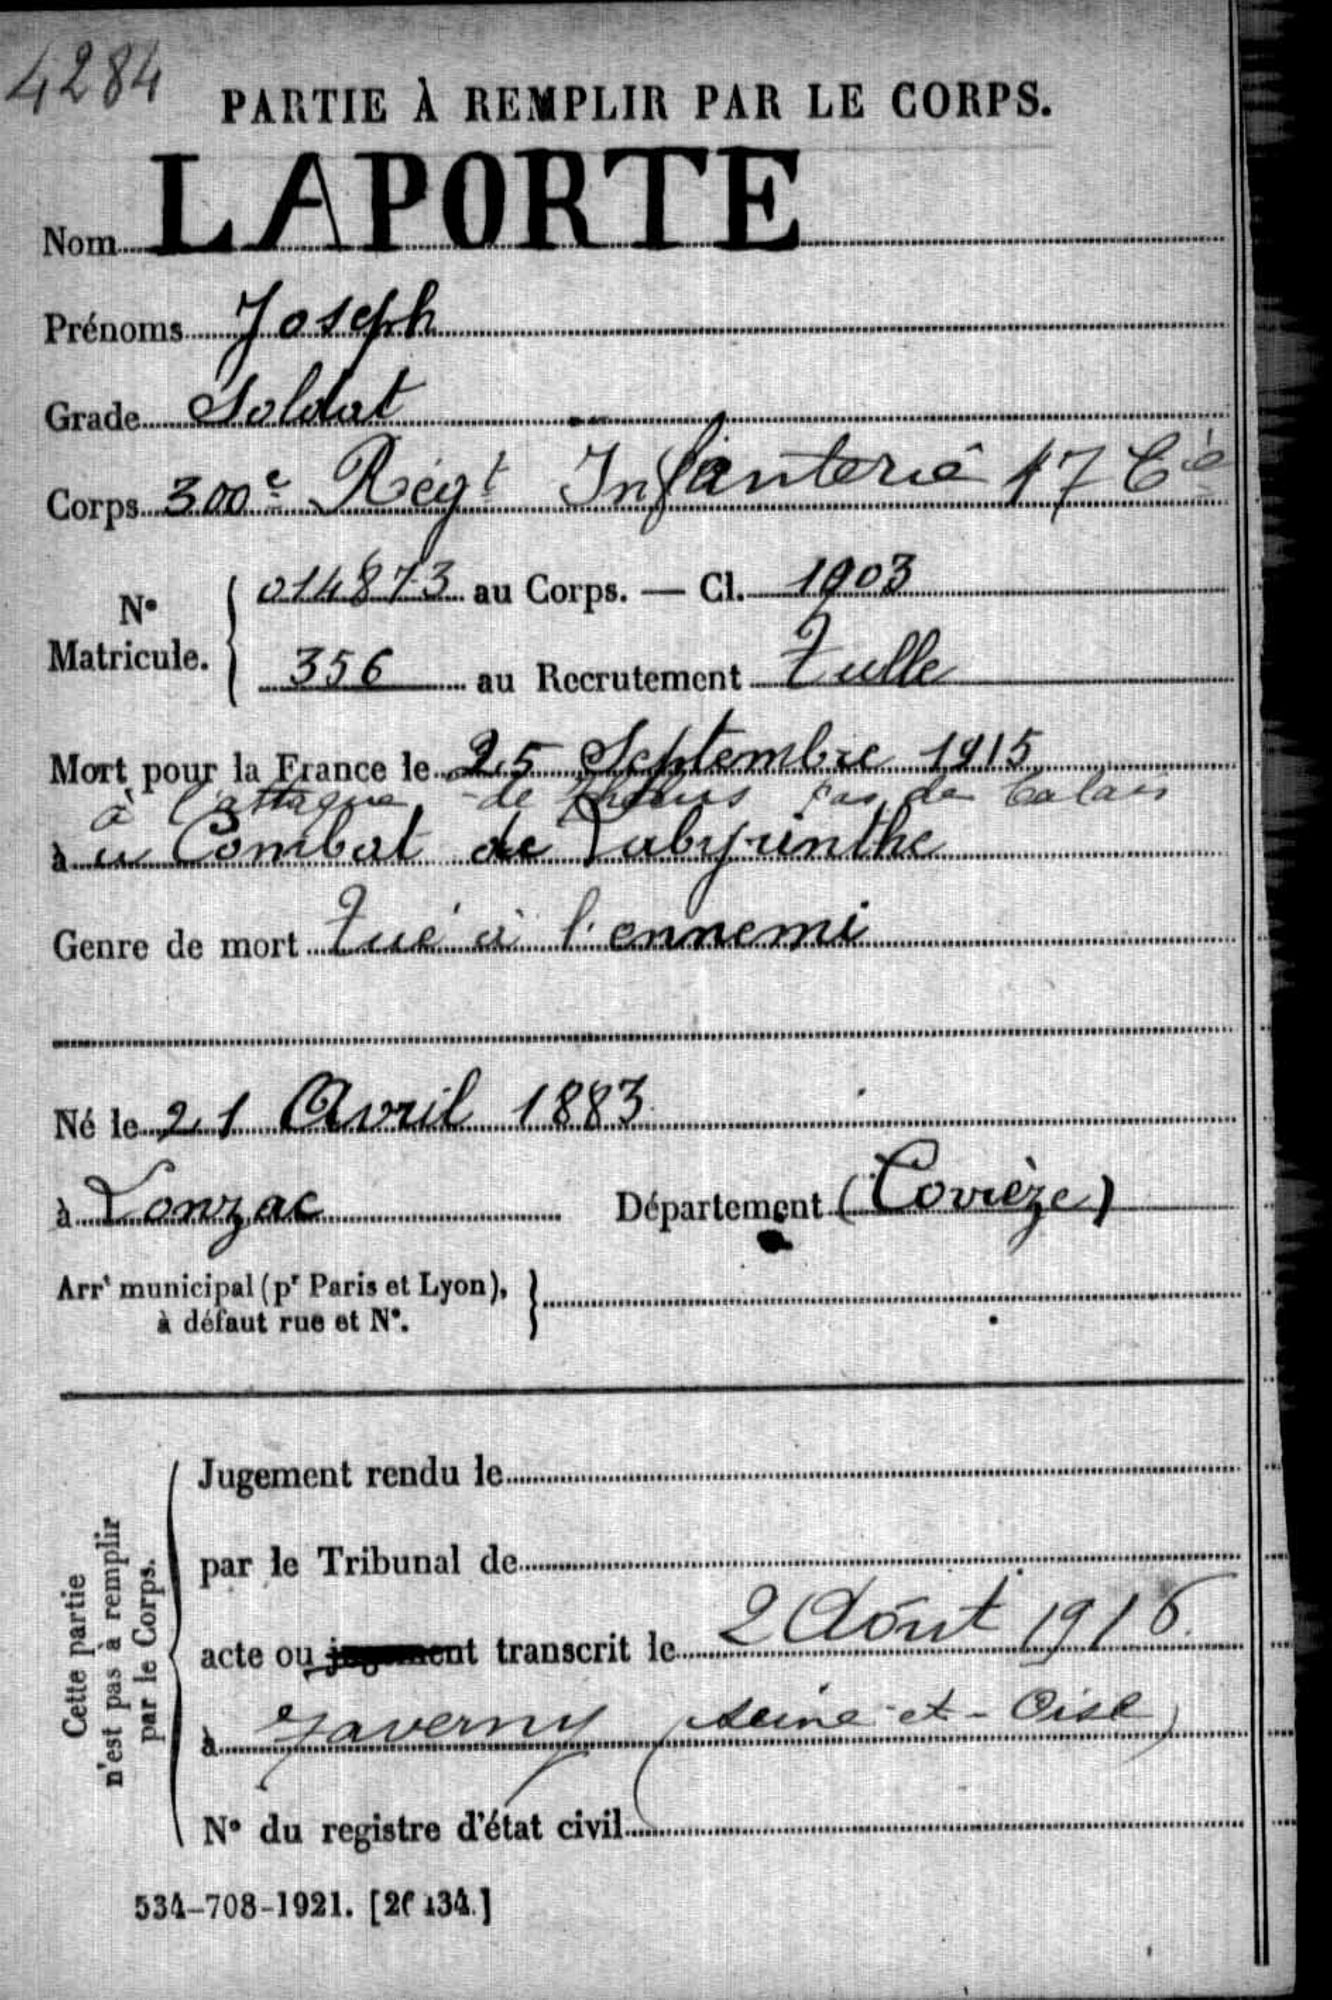 4284
PARTIE À REMPLIR PAR LE CORPS.
Nom LAPORTE
Prénoms Joseph
Grade Soldat
Corps 300e Régt Infanterie 17 Cie
N° Matricule. 014873 au Corps. — Cl. 1903
356 au Recrutement Tulle
Mort pour la France le 25 Septembre 1915
à l'attaque de Thélus Pas de Calais
à au Combat de Labyrinthe
Genre de mort Tué à l'ennemi
Né le 21 Avril 1883
à Lonzac Département (Corrèze)
Arrt municipal (pr Paris et Lyon),
à défaut rue et N°.
Cette partie n'est pas à remplir par le Corps.
Jugement rendu le
par le Tribunal de
acte ou jugement transcrit le 2 Août 1916
à Taverny (Seine-et-Oise)
N° du registre d'état civil
534-708-1921. [26434.]